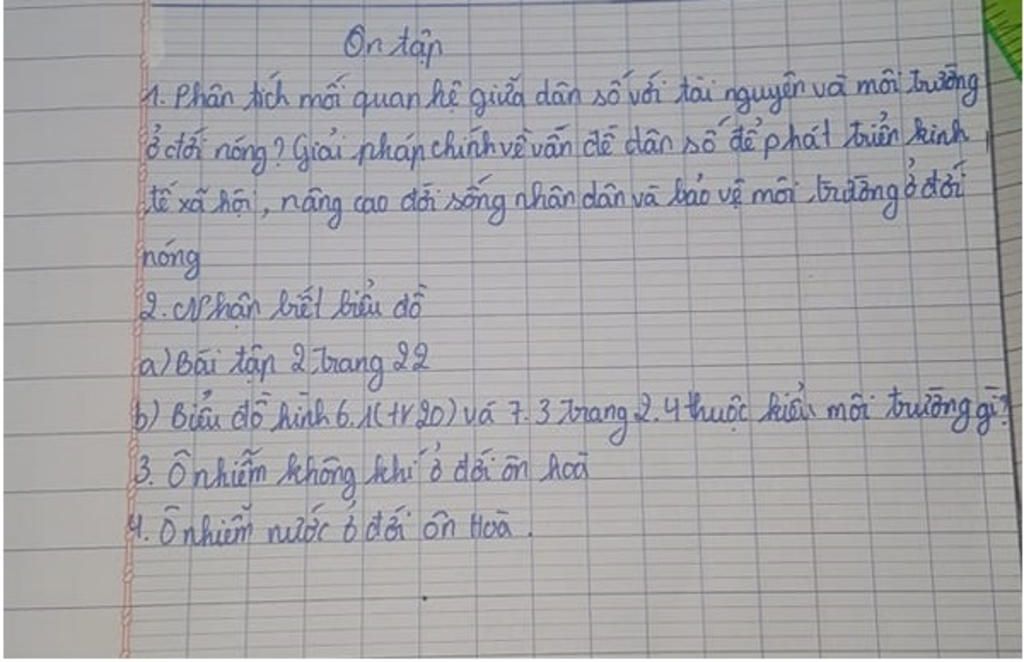 Ôn tập
1. Phân tích mối quan hệ giữa dân số với tài nguyên và môi trường
ở đới nóng? Giải pháp chính về vấn đề dân số để phát triển kinh
tế xã hội, nâng cao đời sống nhân dân và bảo vệ môi trường ở đới
nóng
2. Nhận biết biểu đồ
a) Bài tập 2 trang 22
b) Biểu đồ hình 6.1(tr20) và 7.3 trang 2.4 thuộc kiểu môi trường gì?
3. Ô nhiễm không khí ở đới ôn hoà
4. Ô nhiễm nước ở đới ôn Hoà.